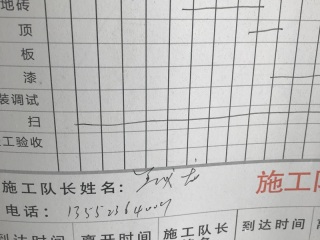 地砖
顶
板
漆
装调试
扫
工验收
施工队长姓名：
施工队
电话：13552364007
到达时间 离开时间 施工队长姓名 到达时间